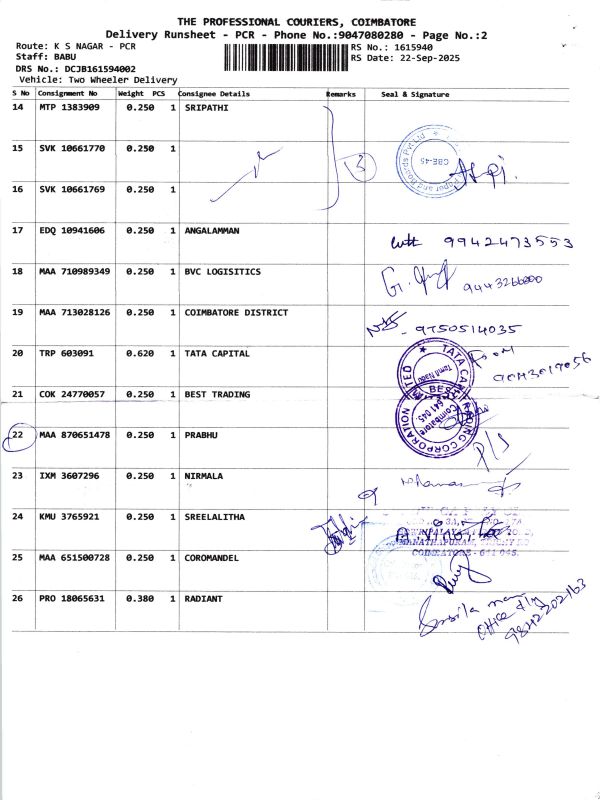 THE PROFESSIONAL COURIERS, COIMBATORE
Delivery Runsheet - PCR - Phone No.:9047080280 - Page No.:2
Route: K S NAGAR - PCR
RS No.: 1615940
Staff: BABU
RS Date: 22-Sep-2025
DRS No.: DCJB161594002
Vehicle: Two Wheeler Delivery
S No Consignment No Weight PCS Consignee Details Remarks Seal & Signature
14 MTP 1383909 0.250 1 SRIPATHI
15 SVK 10661770 0.250 1
3
CBE-45
16 SVK 10661769 0.250 1
17 EDQ 10941606 0.250 1 ANGALAMMAN
9942473553
18 MAA 710989349 0.250 1 BVC LOGISITICS
9443266000
19 MAA 713028126 0.250 1 COIMBATORE DISTRICT
9750514035
20 TRP 603091 0.620 1 TATA CAPITAL
TATA CAPITAL LIMITED
Tamil Nadu
21 COK 24770057 0.250 1 BEST TRADING
BEST TRADING CORPORATION
Coimbatore
641 045.
22 MAA 870651478 0.250 1 PRABHU
P/S
23 IXM 3607296 0.250 1 NIRMALA
24 KMU 3765921 0.250 1 SREELALITHA
COIMBATORE - 641 045.
25 MAA 651500728 0.250 1 COROMANDEL
26 PRO 18065631 0.380 1 RADIANT
office
9842202163